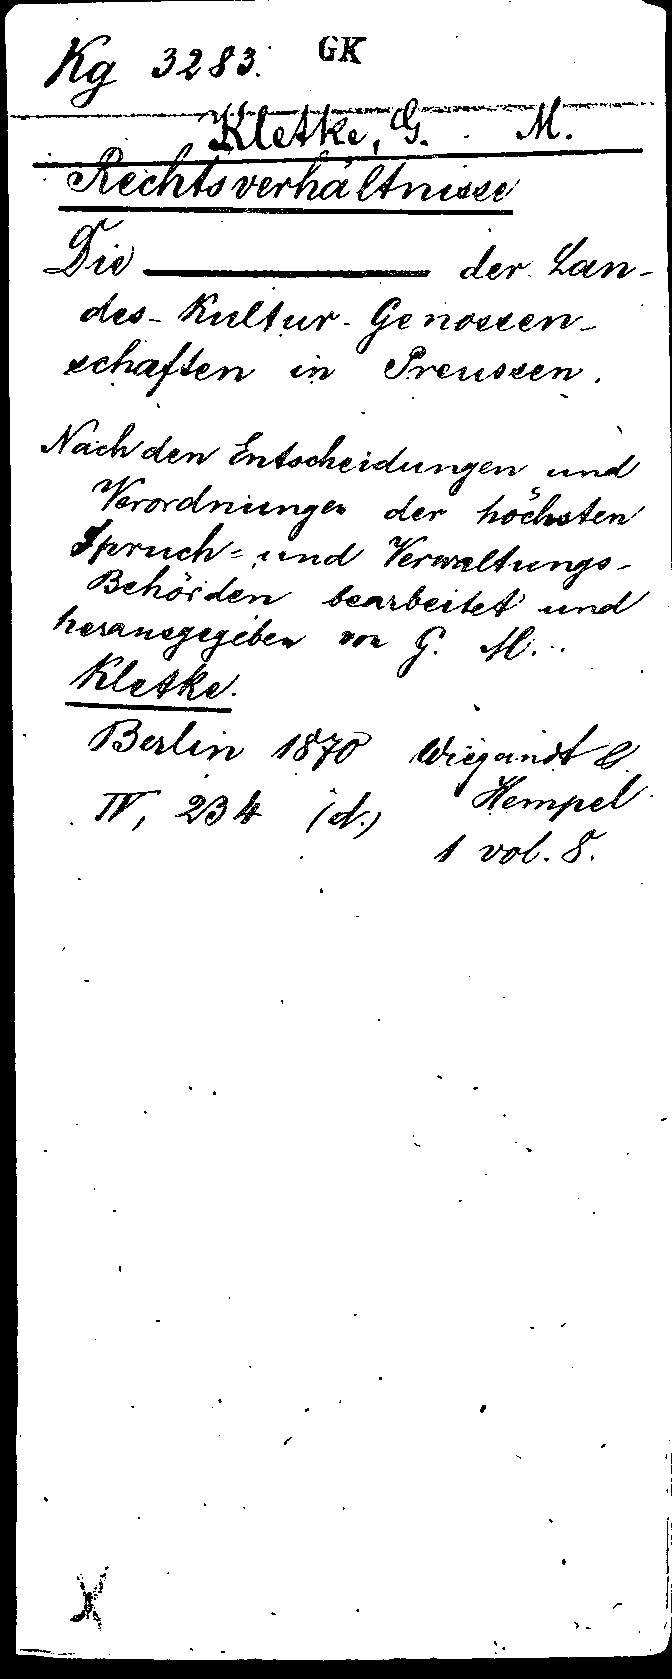 Kg 3283. GK
Kletke, G. M.
Rechtsverhältnisse
Die ——— der Lan-
des-Kultur-Genossen-
schaften in Preussen.
Nach den Entscheidungen und
Verordnungen der höchsten
Spruch= und Verwaltungs-
Behörden bearbeitet und
herausgegeben von G. M.
Kletke.
Berlin 1870 Wiegandt &
Hempel
IV, 234 (d.)
1 vol. 8.
X